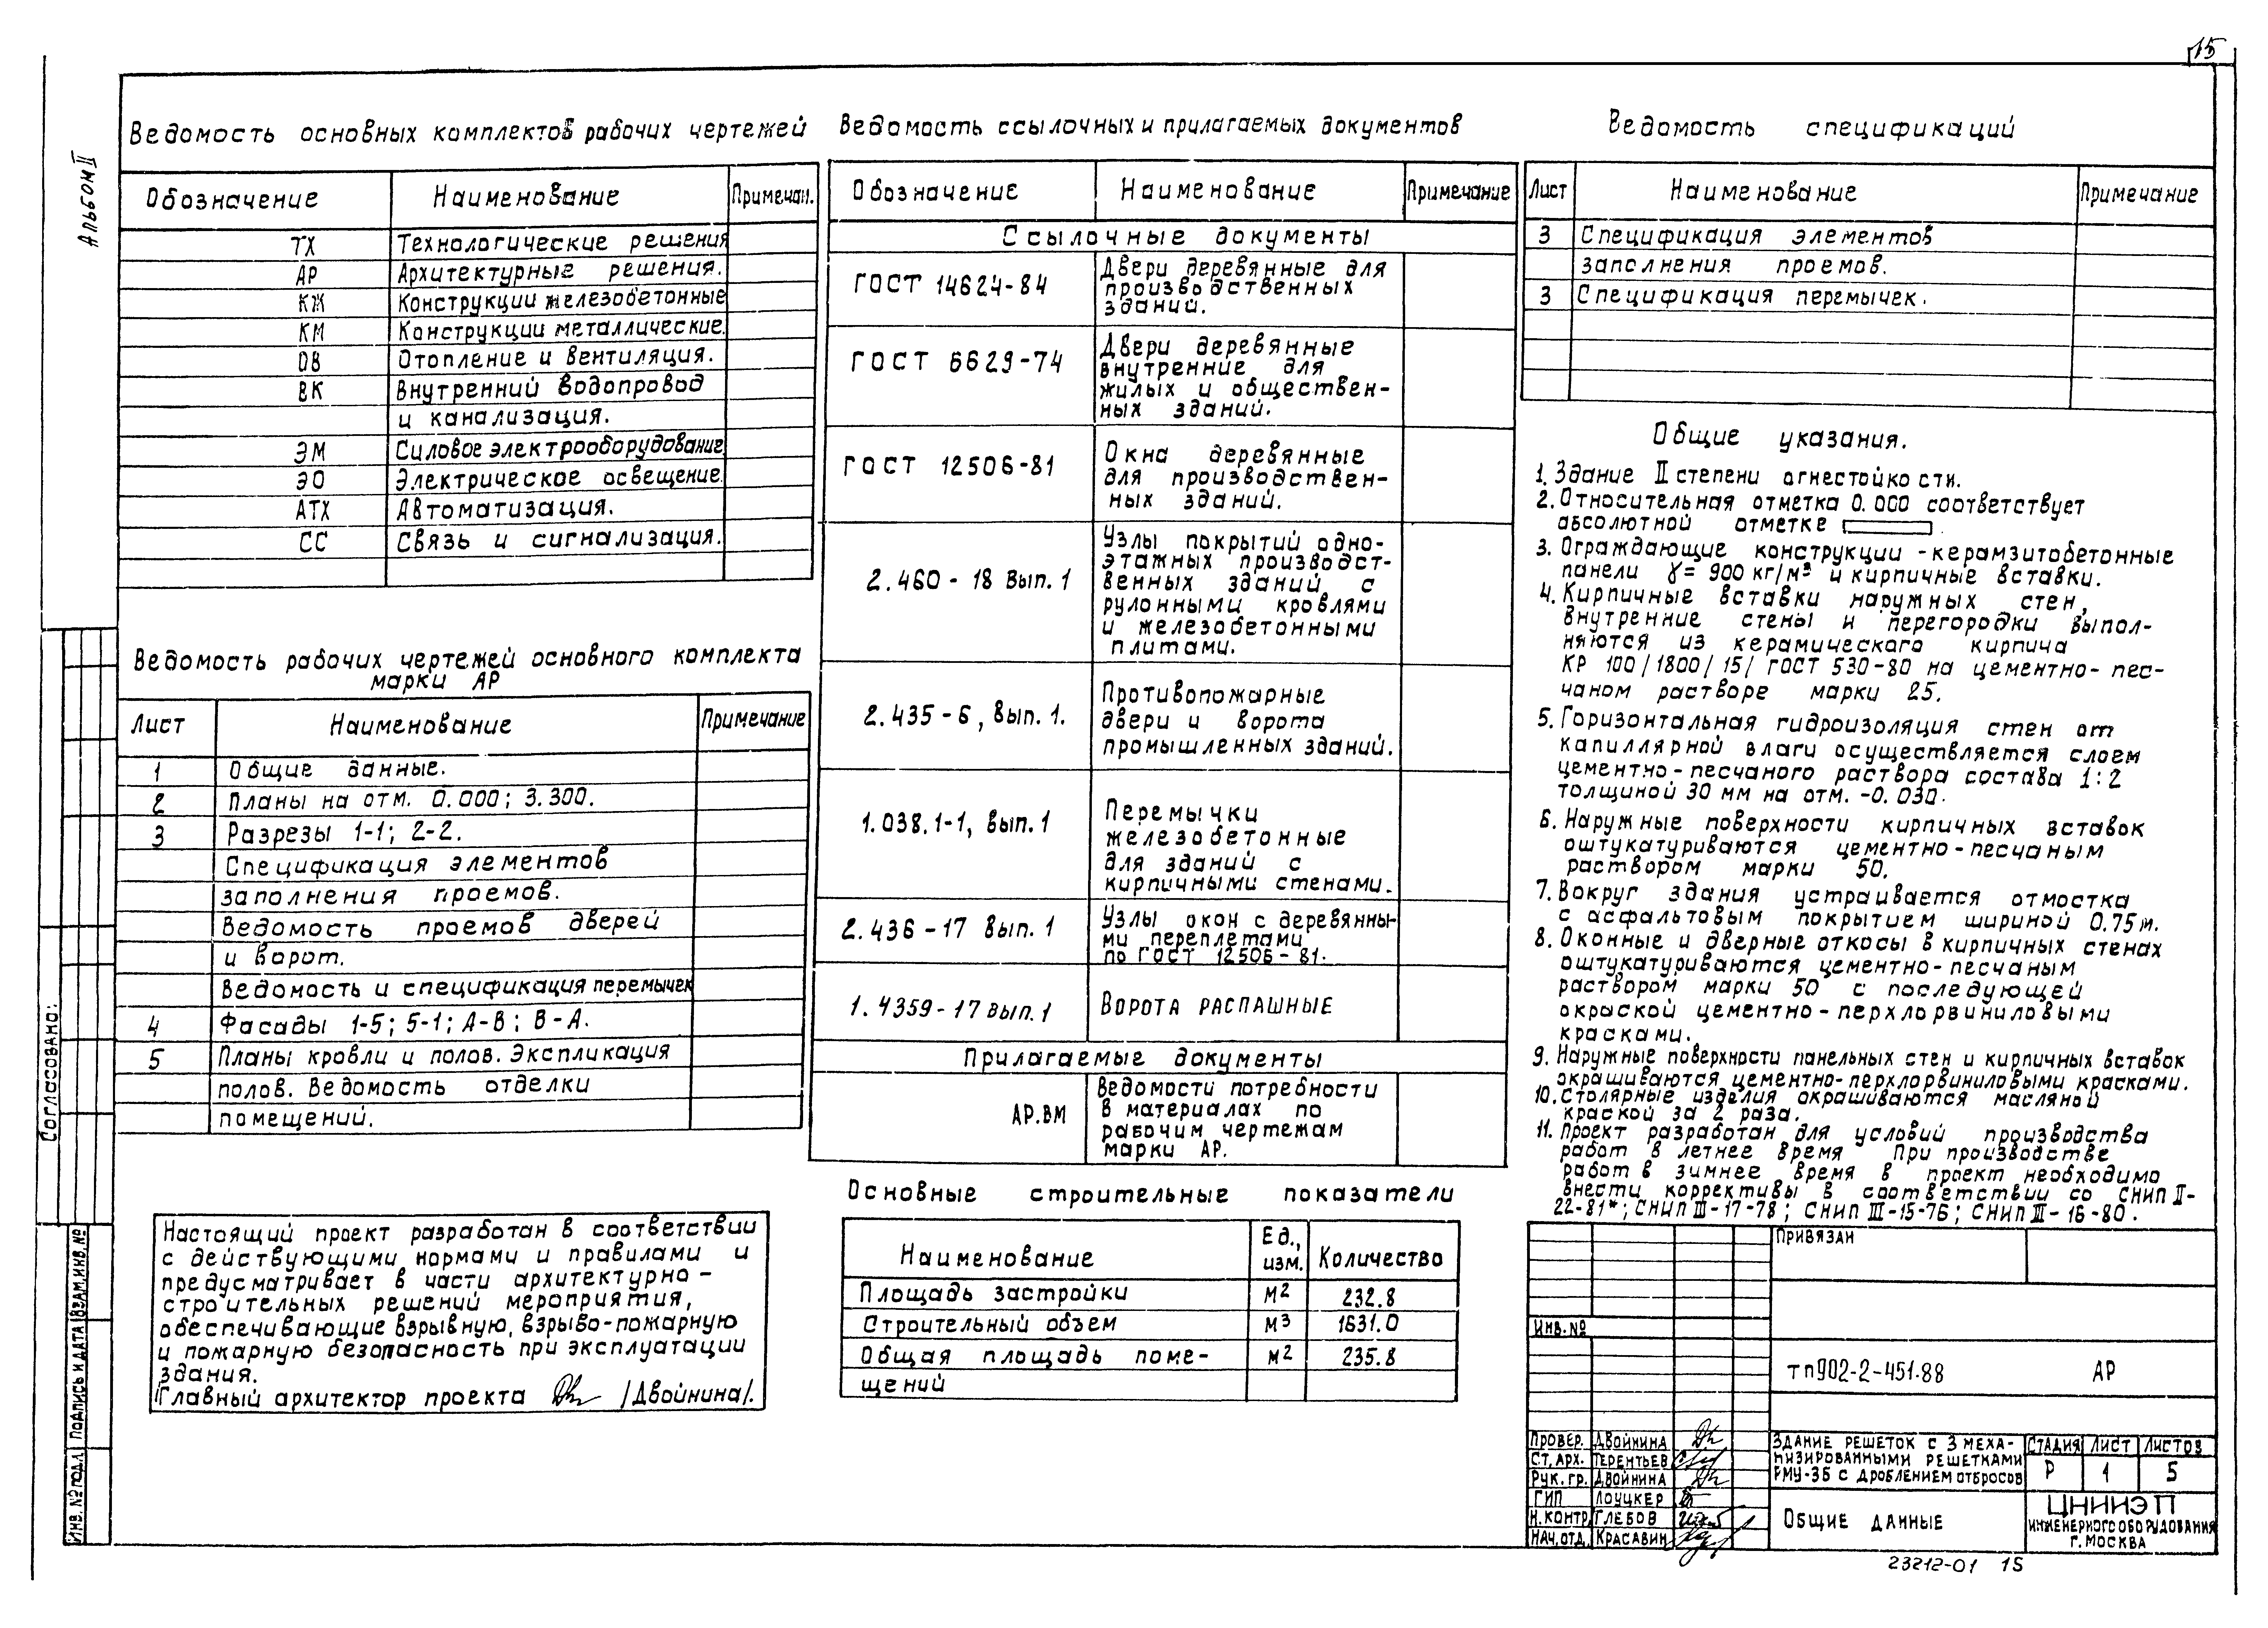 15
Альбом II
Ведомость основных комплектов рабочих чертежей
Обозначение Наименование Примечан.
ТХ Технологические решения
АР Архитектурные решения.
КЖ Конструкции железобетонные
КМ Конструкции металлические.
ОВ Отопление и вентиляция.
ВК Внутренний водопровод
и канализация.
ЭМ Силовое электрооборудование
ЭО Электрическое освещение.
АТХ Автоматизация.
СС Связь и сигнализация.
Ведомость рабочих чертежей основного комплекта
марки АР
Лист Наименование Примечание
1 Общие данные.
2 Планы на отм. 0.000; 3.300.
3 Разрезы 1-1; 2-2.
Спецификация элементов
заполнения проемов.
Ведомость проемов дверей
и ворот.
Ведомость и спецификация перемычек
4 Фасады 1-5; 5-1; А-В; В-А.
5 Планы кровли и полов. Экспликация
полов. Ведомость отделки
помещений.
Настоящий проект разработан в соответствии
с действующими нормами и правилами и
предусматривает в части архитектурно-
строительных решений мероприятия,
обеспечивающие взрывную, взрыво-пожарную
и пожарную безопасность при эксплуатации
здания.
Главный архитектор проекта /Двойнина/.
Ведомость ссылочных и прилагаемых документов
Обозначение Наименование Примечание
Ссылочные документы
ГОСТ 14624-84 Двери деревянные для
производственных
зданий.
ГОСТ 6629-74 Двери деревянные
внутренние для
жилых и обществен-
ных зданий.
ГОСТ 12506-81 Окна деревянные
для производствен-
ных зданий.
2.460-18 Вып. 1 Узлы покрытий одно-
этажных производст-
венных зданий с
рулонными кровлями
и железобетонными
плитами.
2.435-6, Вып. 1. Противопожарные
двери и ворота
промышленных зданий.
1.038.1-1, вып. 1 Перемычки
железобетонные
для зданий с
кирпичными стенами.
2.436-17 Вып. 1 Узлы окон с деревянны-
ми переплетами
по ГОСТ 12506-81.
1.4359-17 Вып. 1 Ворота распашные
Прилагаемые документы
АР.ВМ Ведомости потребности
в материалах по
рабочим чертежам
марки АР.
Основные строительные показатели
Наименование Ед., изм. Количество
Площадь застройки м2 232.8
Строительный объем м3 1631.0
Общая площадь поме- м2 235.8
щений
Ведомость спецификаций
Лист Наименование Примечание
3 Спецификация элементов
заполнения проемов.
3 Спецификация перемычек.
Общие указания.
1. Здание II степени огнестойкости.
2. Относительная отметка 0.000 соответствует
абсолютной отметке
3. Ограждающие конструкции - керамзитобетонные
панели γ = 900 кг/м³ и кирпичные вставки.
4. Кирпичные вставки наружных стен,
внутренние стены и перегородки выпол-
няются из керамического кирпича
КР 100/1800/15/ ГОСТ 530-80 на цементно-пес-
чаном растворе марки 25.
5. Горизонтальная гидроизоляция стен от
капиллярной влаги осуществляется слоем
цементно-песчаного раствора состава 1:2
толщиной 30 мм на отм. -0.030.
6. Наружные поверхности кирпичных вставок
оштукатуриваются цементно-песчаным
раствором марки 50.
7. Вокруг здания устраивается отмостка
с асфальтовым покрытием шириной 0.75м.
8. Оконные и дверные откосы в кирпичных стенах
оштукатуриваются цементно-песчаным
раствором марки 50 с последующей
окраской цементно-перхлорвиниловыми
красками.
9. Наружные поверхности панельных стен и кирпичных вставок
окрашиваются цементно-перхлорвиниловыми красками.
10. Столярные изделия окрашиваются масляной
краской за 2 раза.
11. Проект разработан для условий производства
работ в летнее время При производстве
работ в зимнее время в проект необходимо
внести коррективы в соответствии со СНиП II-
22-81*; СНиП III-17-78; СНиП III-15-76; СНиП III-16-80.
Привязан
Инв. №
тп902-2-451.88 АР
Провер. Двойнина
Ст. арх. Терентьев
Рук. гр. Двойнина
ГИП Лоуцкер
Н. контр. Глебов
Нач. отд. Красавин
Здание решеток с 3 меха-
низированными решетками
РМУ-3Б с дроблением отбросов
Стадия Лист Листов
Р 1 5
Общие данные
ЦНИИЭП
инженерного оборудования
г. Москва
23212-01 15
Согласовано:
Инв. № подл. Подпись и дата Взам. инв. №